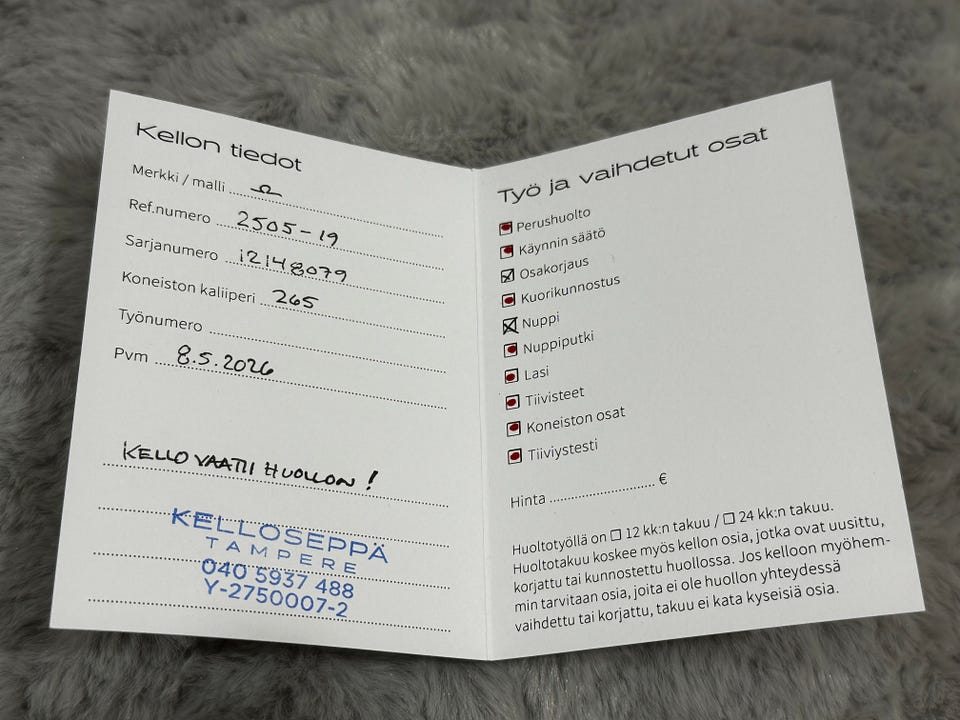 Kellon tiedot
Merkki / malli ........ Ω
Ref.numero ........ 2505-19
Sarjanumero ........ 12148079
Koneiston kaliiperi ........ 265
Työnumero ........
Pvm ........ 8.5.2026
KELLO VAATII HUOLLON !
KELLOSEPPÄ
TAMPERE
040 5937 488
Y-2750007-2
Työ ja vaihdetut osat
Perushuolto
Käynnin säätö
☒ Osakorjaus
Kuorikunnostus
☒ Nuppi
Nuppiputki
Lasi
Tiivisteet
Koneiston osat
Tiiviystesti
Hinta ........ €
Huoltotyöllä on ☐ 12 kk:n takuu / ☐ 24 kk:n takuu.
Huoltotakuu koskee myös kellon osia, jotka ovat uusittu,
korjattu tai kunnostettu huollossa. Jos kelloon myöhem-
min tarvitaan osia, joita ei ole huollon yhteydessä
vaihdettu tai korjattu, takuu ei kata kyseisiä osia.